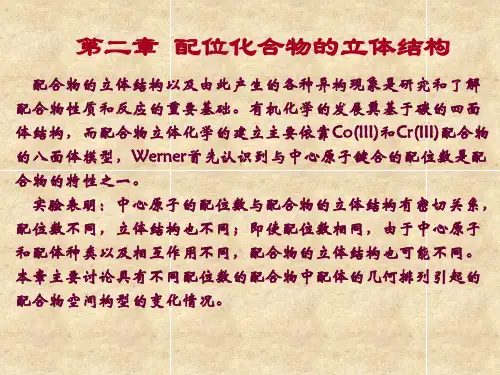 第二章 配位化合物的立体结构
配合物的立体结构以及由此产生的各种异构现象是研究和了解
配合物性质和反应的重要基础。有机化学的发展奠基于碳的四面
体结构，而配合物立体化学的建立主要依靠Co(III)和Cr(III)配合物
的八面体模型，Werner首先认识到与中心原子键合的配位数是配
合物的特性之一。
实验表明：中心原子的配位数与配合物的立体结构有密切关系，
配位数不同，立体结构也不同；即使配位数相同，由于中心原子
和配体种类以及相互作用不同，配合物的立体结构也可能不同。
本章主要讨论具有不同配位数的配合物中配体的几何排列引起的
配合物空间构型的变化情况。